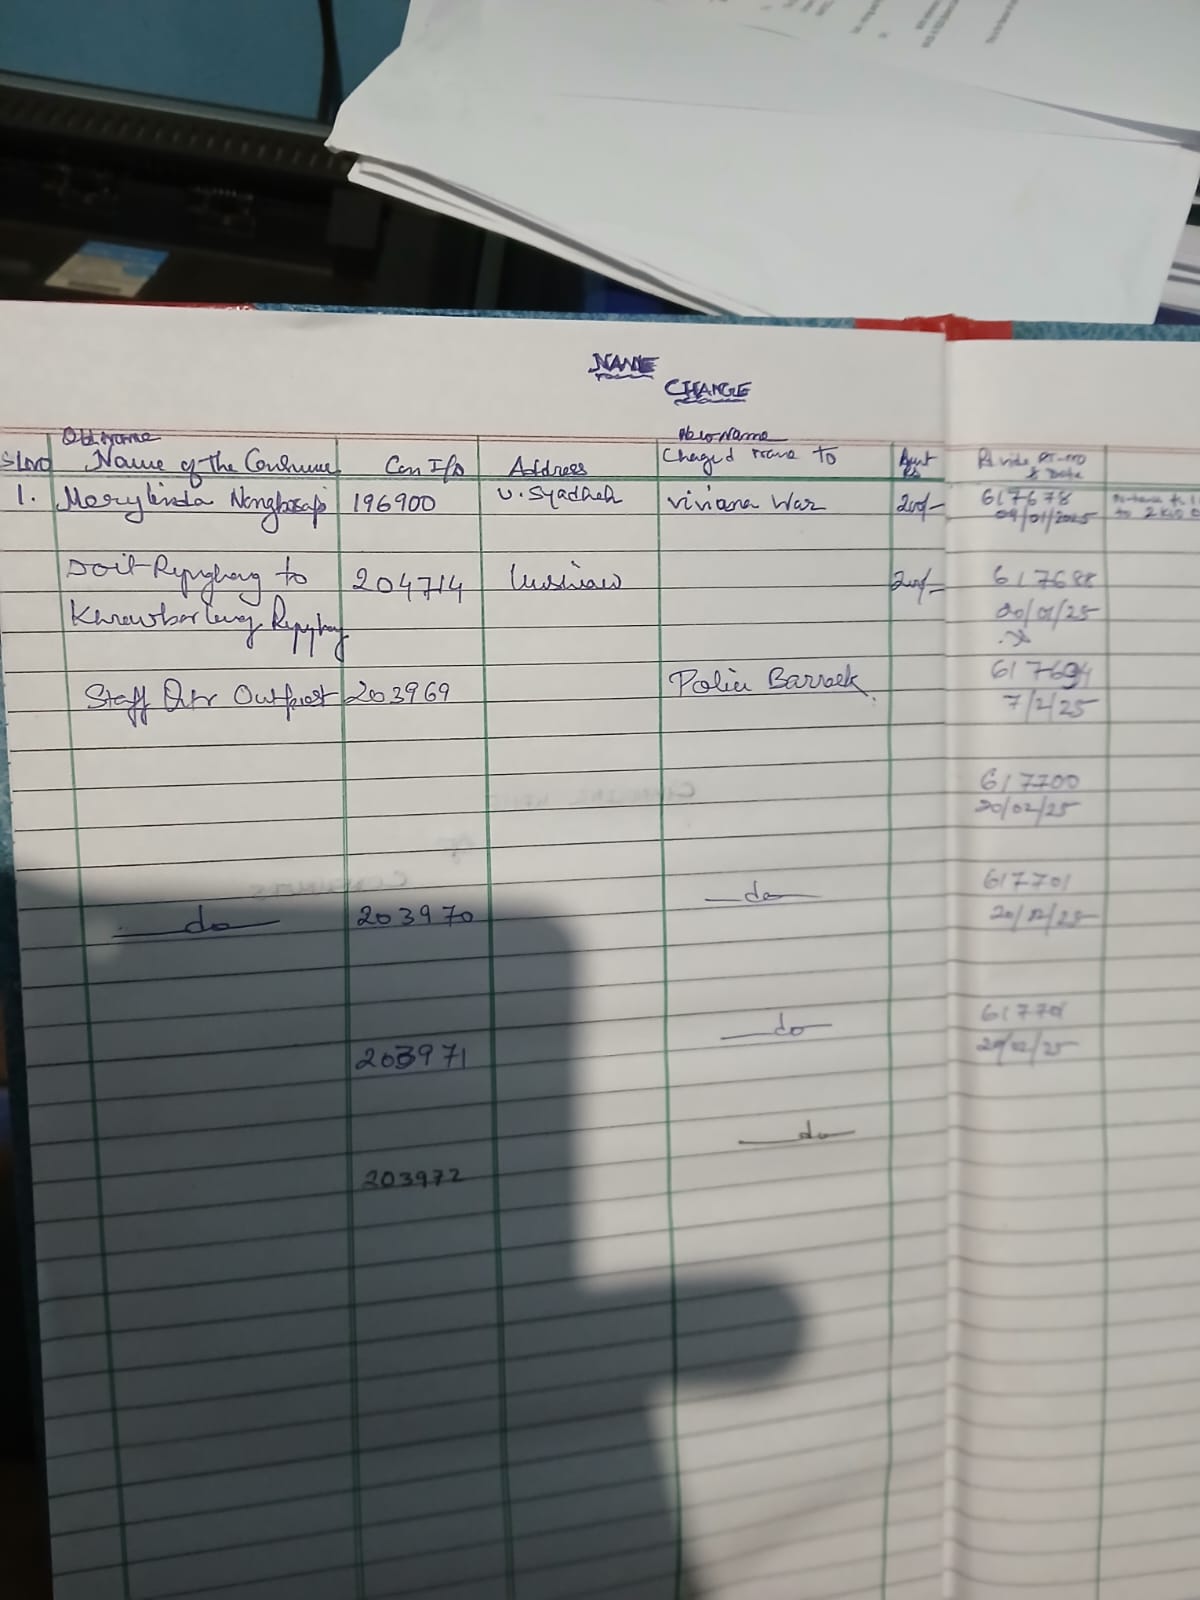 NAME
CHANGE
Old Name
New Name
Sl no Name of the Consumer Con I/D Address Changed name to Amt Rs Rs vide RT-NO & Date
1. Merylinda Nongbsap 196900 U. Syadheh Viviana War 200/- 617678
09/01/2025
to 2 KW
Doit Rynghang to 204714 200/- 617688
/25
Staff Qtr Outpost 203969 Police Barrack 617694
7/2/25
617700
20/02/25
617701
do 203970 do 20/02/25
do
203971 20/02/25
do
203972